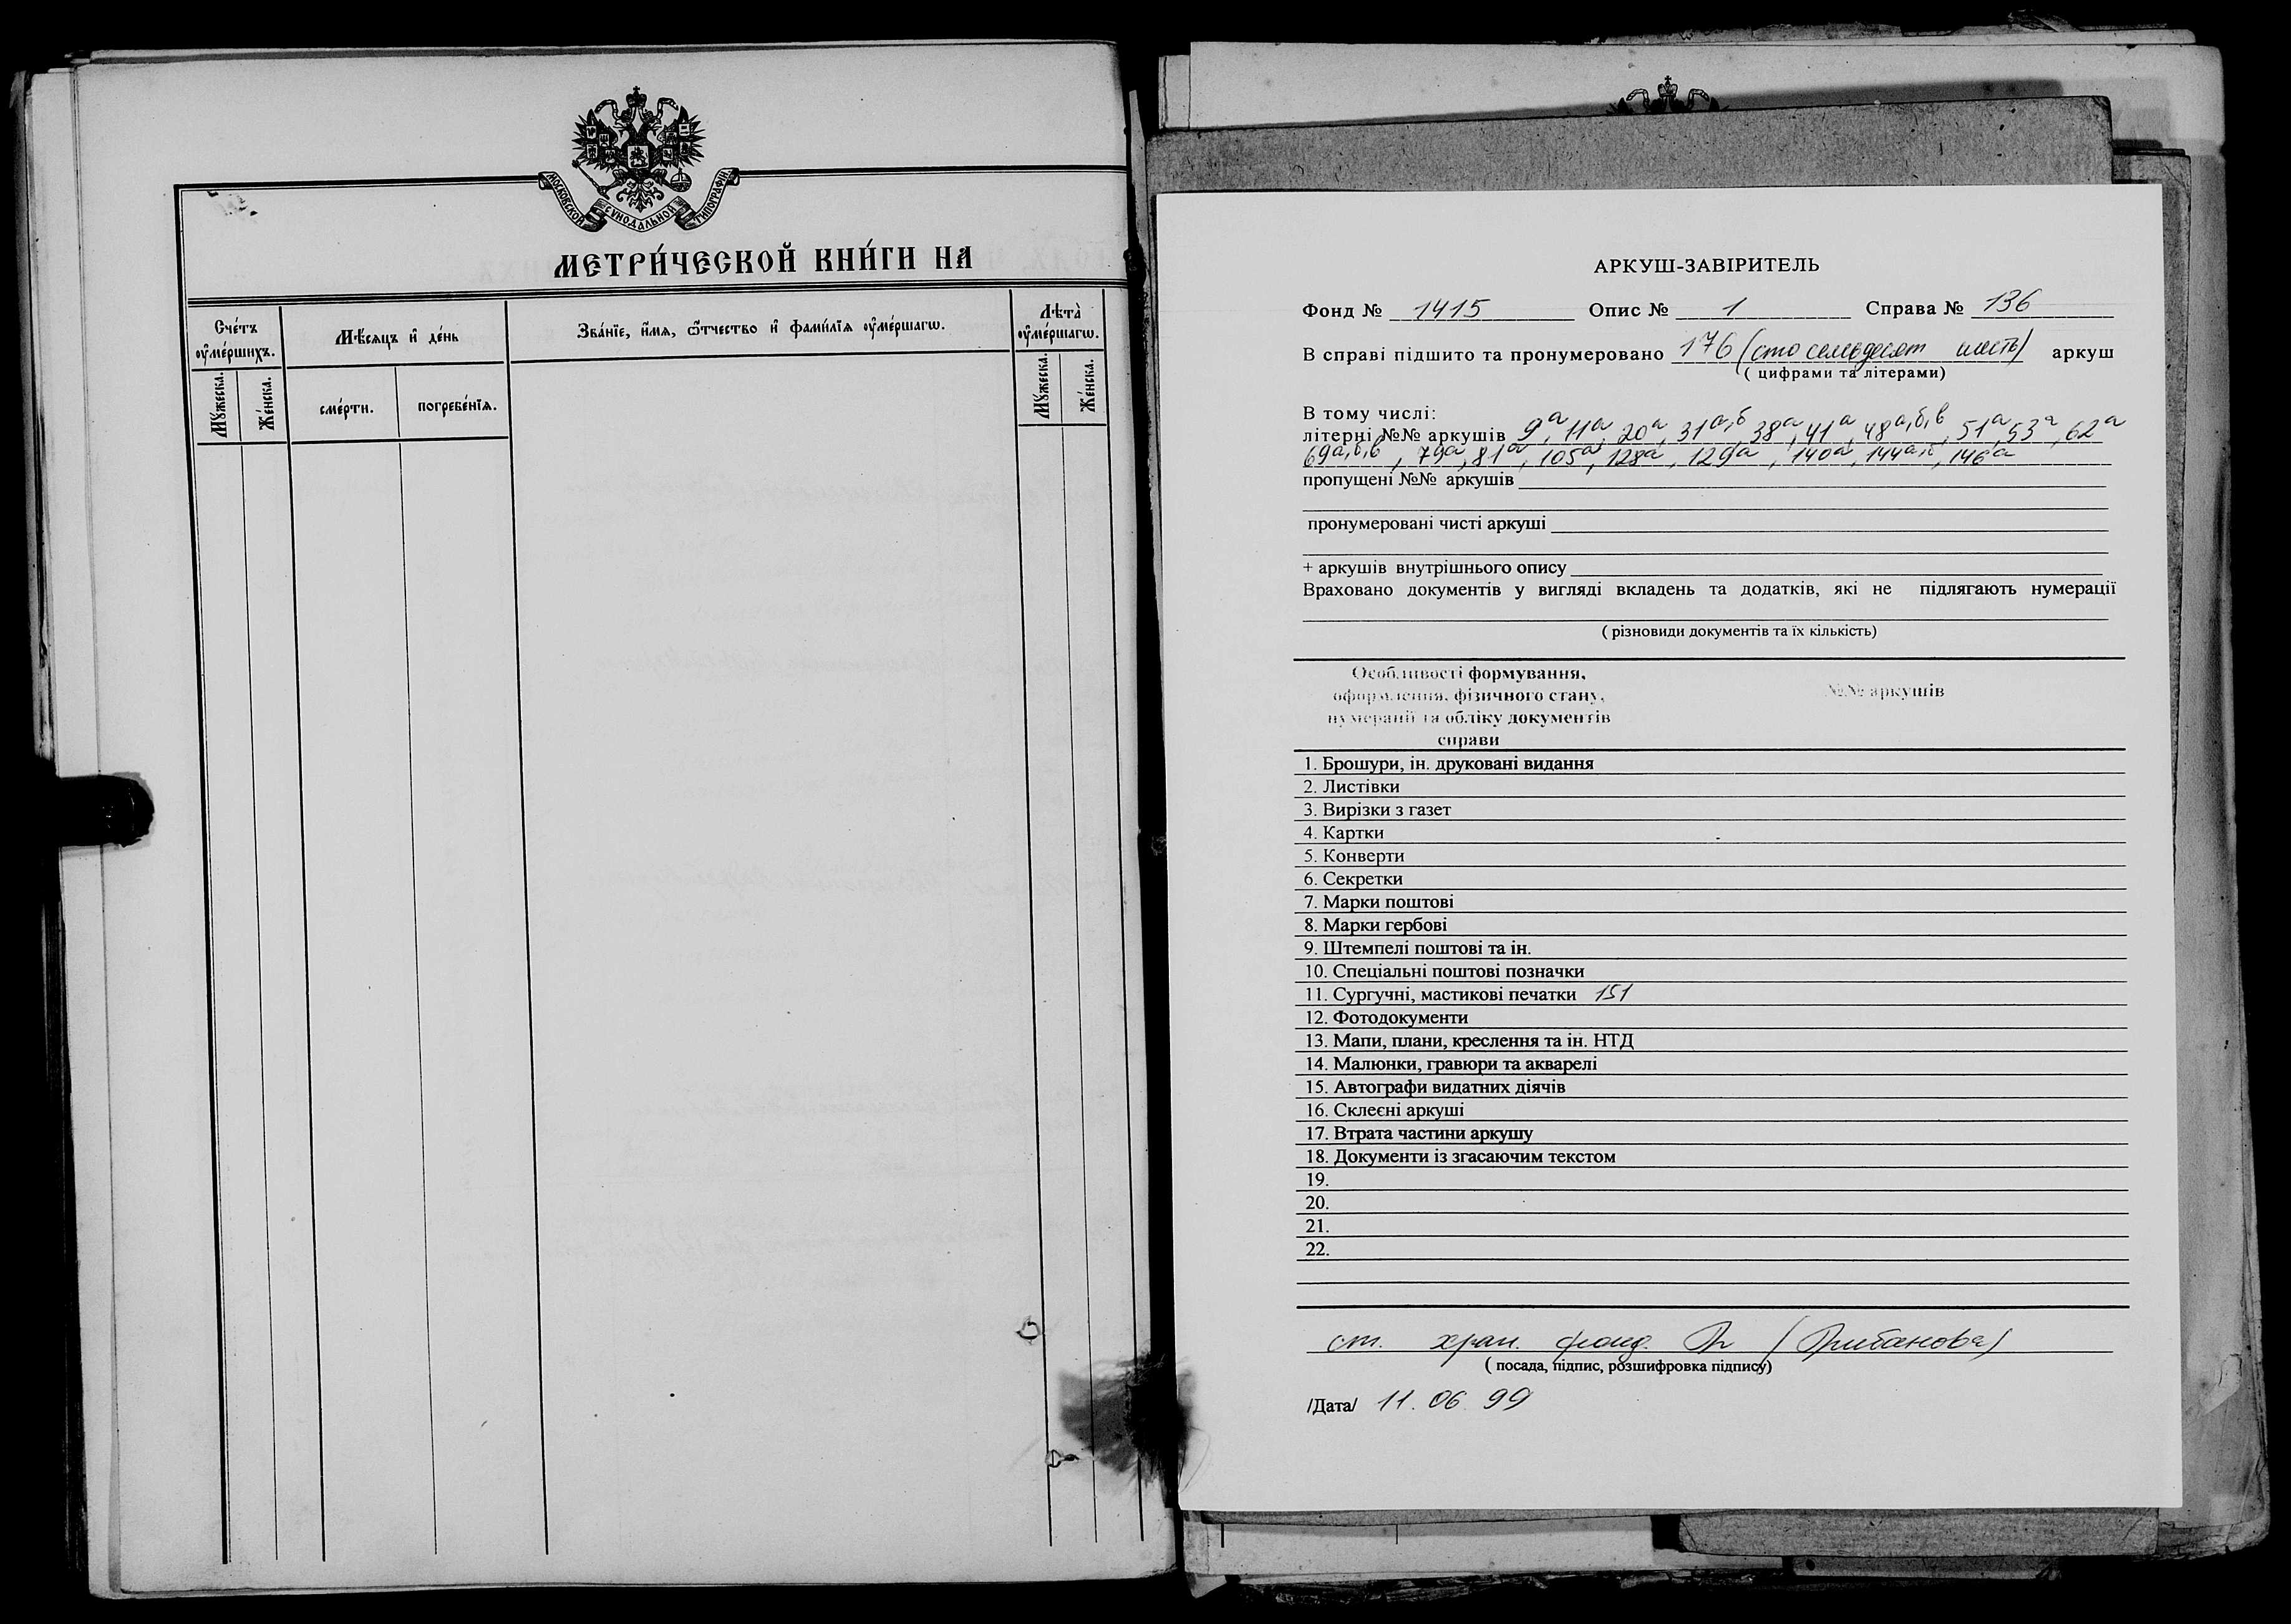 МОСКОВСКОЙ СѴНОДАЛЬНОЙ ТИПОГРАФІИ
МЕТРИ́ЧЕСКОЙ КНИ́ГИ НА
Сче́тъ ᲂу҆ме́ршихъ.
Мꙋ́жеска.
Же́нска.
Мѣ́сѧцъ и҆ де́нь
сме́рти.
погребе́нїѧ.
Зва́нїе, и҆́мѧ, ѻ҆́тчество и҆ фами́лїѧ ᲂу҆ме́ршагѡ.
Лѣ́та̀ ᲂу҆ме́ршагѡ.
Мꙋ́жеска.
Же́нска.
АРКУШ-ЗАВІРИТЕЛЬ
Фонд № 1415 Опис № 1 Справа № 136
В справі підшито та пронумеровано 176 (сто семьдесят шесть) аркуш
( цифрами та літерами)
В тому числі:
літерні №№ аркушів 9а, 11а, 20а, 31а,б, 38а, 41а, 48а,б,в, 51а, 53а, 62а
69а,б,в, 79а, 81а, 105а, 128а, 129а, 140а, 144а,б, 146а
пропущені №№ аркушів
пронумеровані чисті аркуші
+ аркушів внутрішнього опису
Враховано документів у вигляді вкладень та додатків, які не підлягають нумерації
( різновиди документів та їх кількість)
Особливості формування,
оформлення, фізичного стану,
нумерації та обліку документів
справи
№№ аркушів
1. Брошури, ін. друковані видання
2. Листівки
3. Вирізки з газет
4. Картки
5. Конверти
6. Секретки
7. Марки поштові
8. Марки гербові
9. Штемпелі поштові та ін.
10. Спеціальні поштові позначки
11. Сургучні, мастикові печатки 151
12. Фотодокументи
13. Мапи, плани, креслення та ін. НТД
14. Малюнки, гравюри та акварелі
15. Автографи видатних діячів
16. Склеєні аркуші
17. Втрата частини аркушу
18. Документи із згасаючим текстом
19.
20.
21.
22.
ст. хран. фонд.
( посада, підпис, розшифровка підпису)
/Дата/ 11. 06. 99